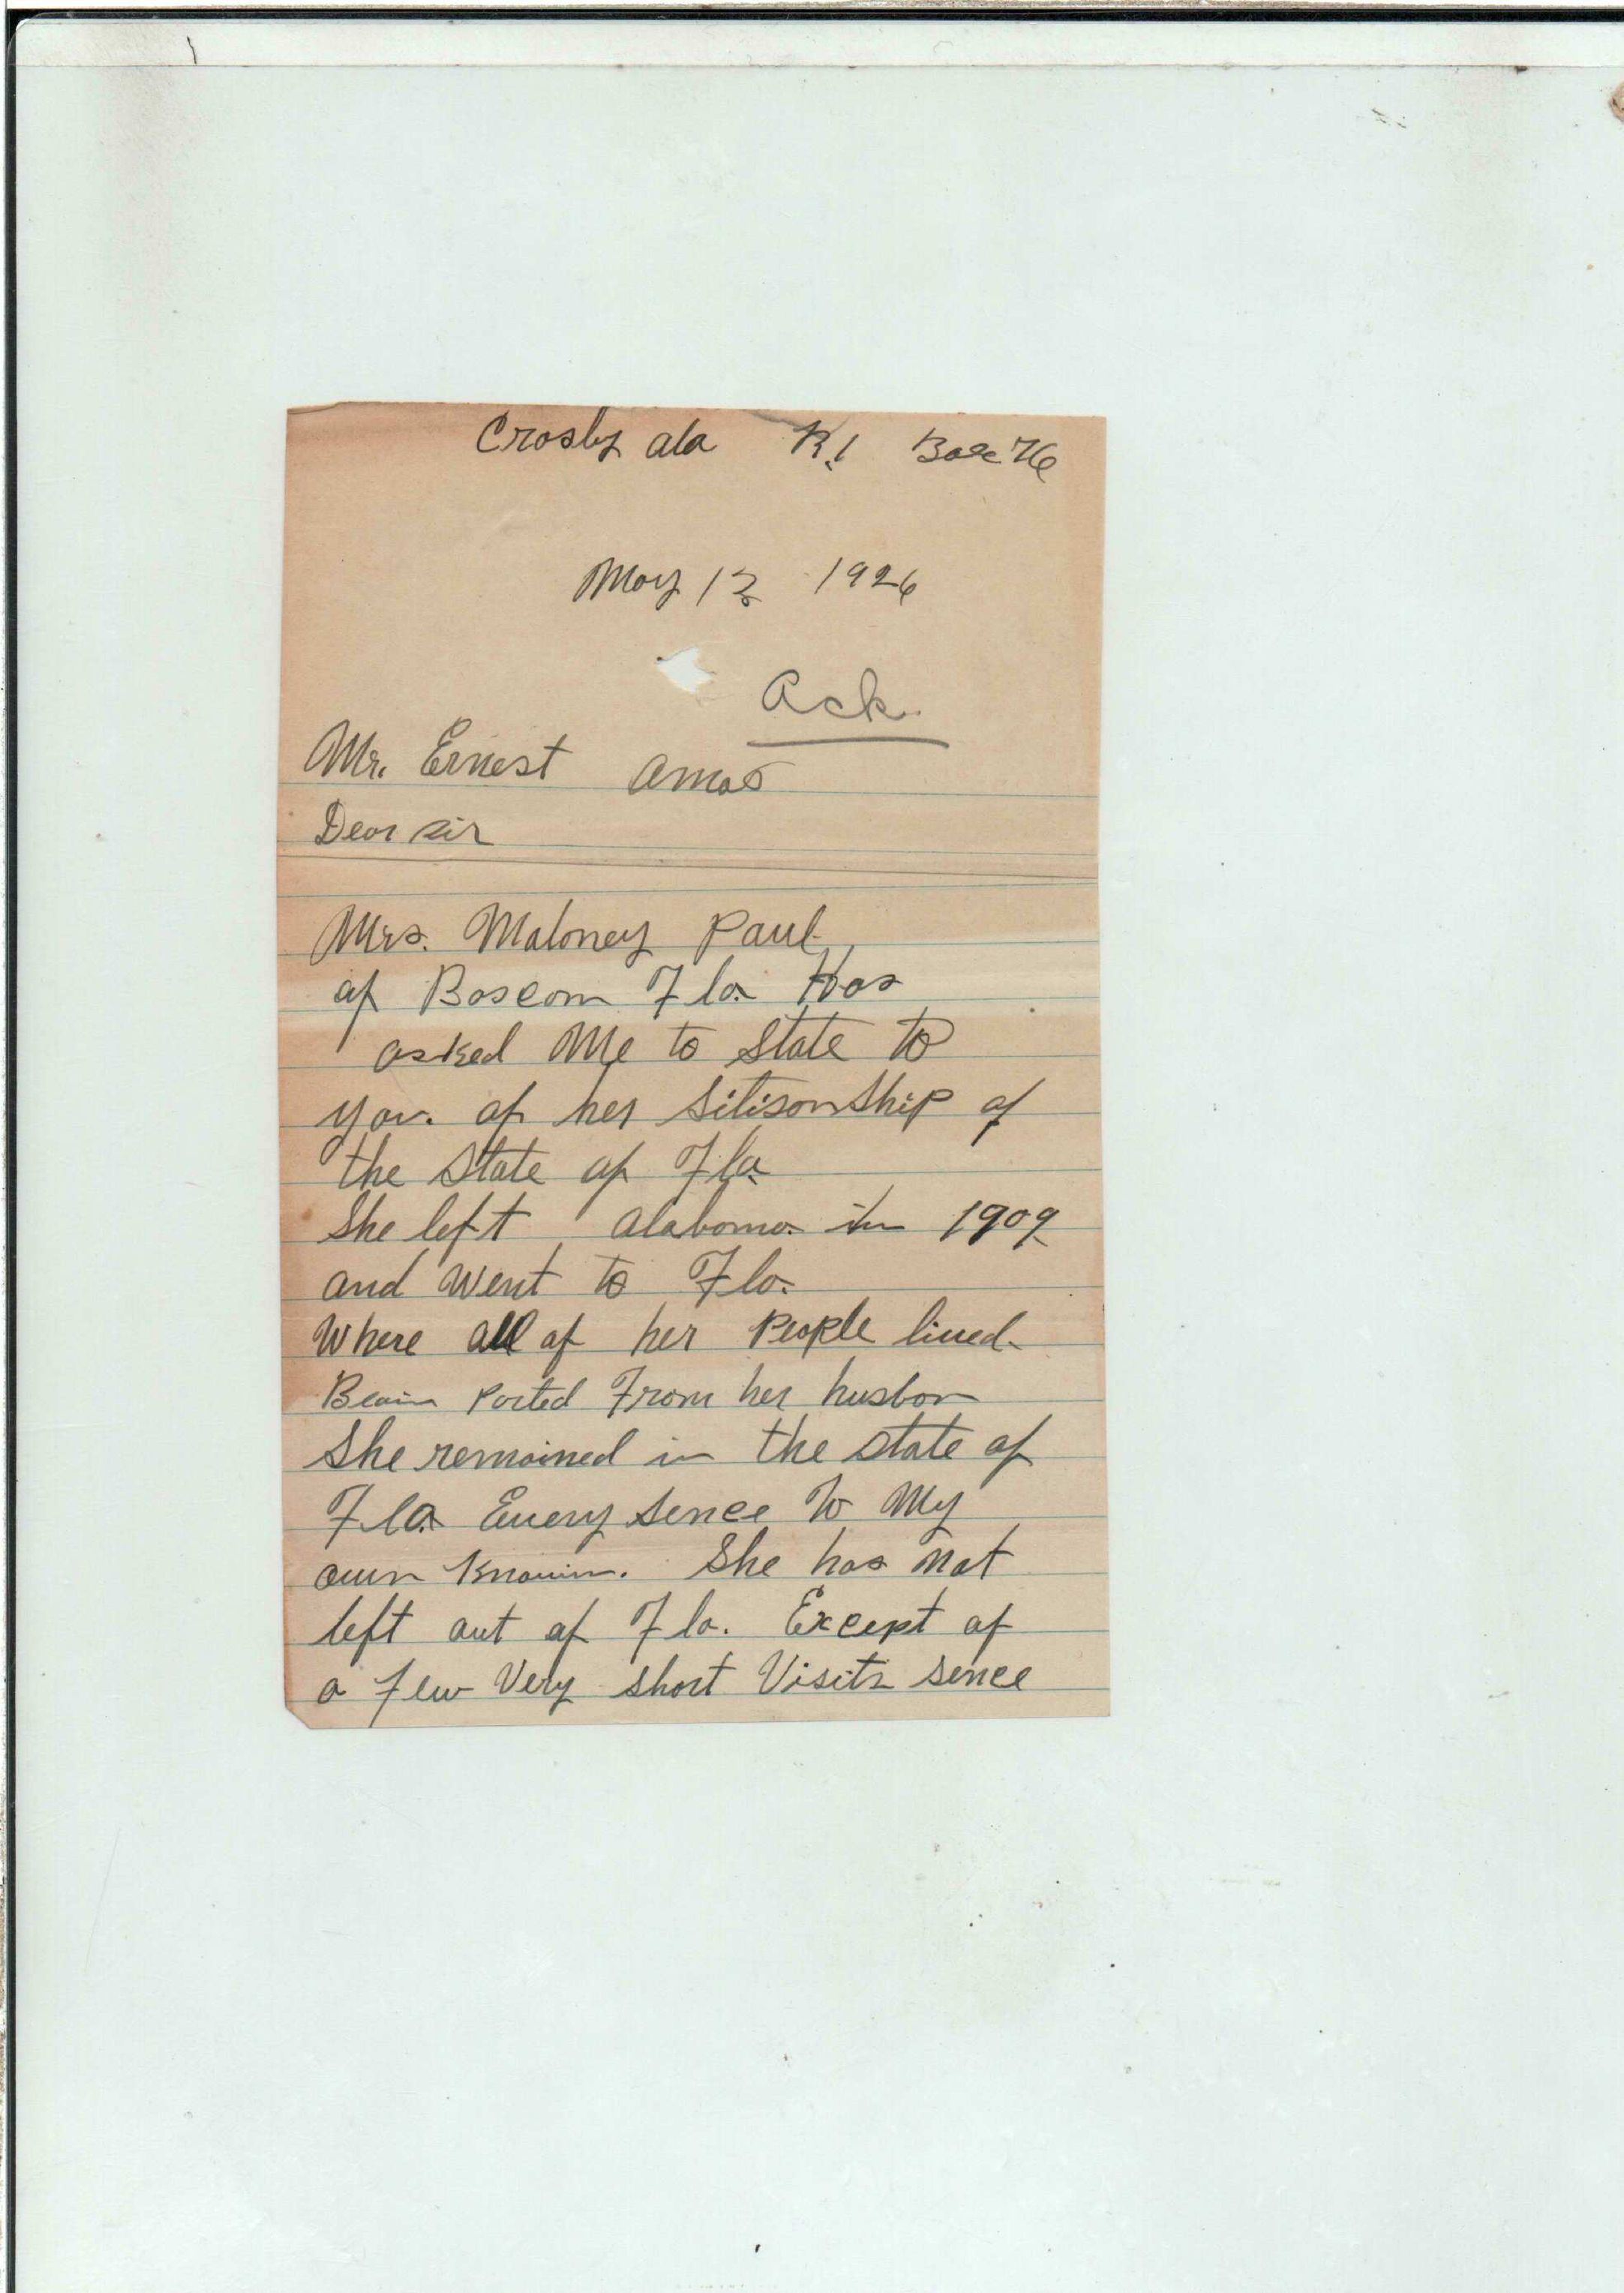 Crosby Ala R.1 Box 76
May 13 1926
Ack.
Mr. Ernest Amos
Dear Sir
Mrs. Maloney Paul
of Bascom Fla. Has
asked Me to State to
you. of her Sitisonship of
the State of Fla
She left Alabama in 1909
and Went to Fla.
Where all of her People lived.
Bein Parted From her husban
She remained in the State of
Fla. Every Sence to My
own Knowin. She has not
left out of Fla. Except of
a few Very Short Visits Sence